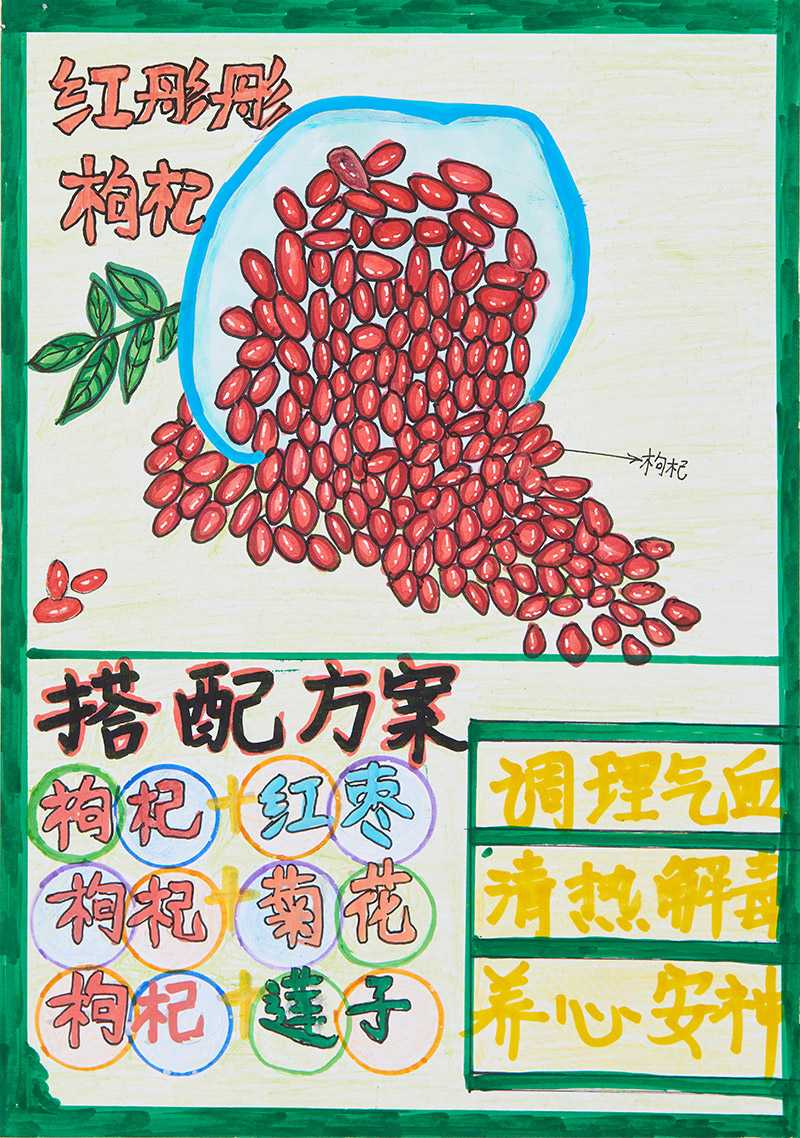 红彤彤
枸杞
枸杞
搭配方案
枸杞+红枣
调理气血
枸杞+菊花
清热解毒
枸杞+莲子
养心安神